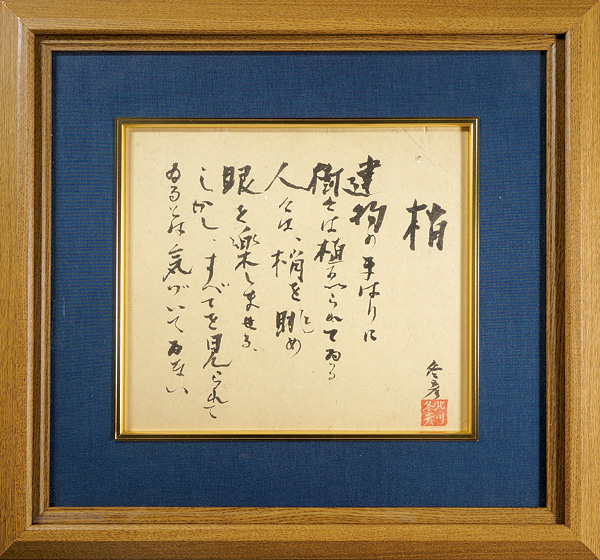 梢
建物の平はりに
樹々は植ゑられてゐる
人々は、梢を眺め
眼を楽しませる、
しかし、すべてを見られて
ゐるとは気がいてゐない
冬彦